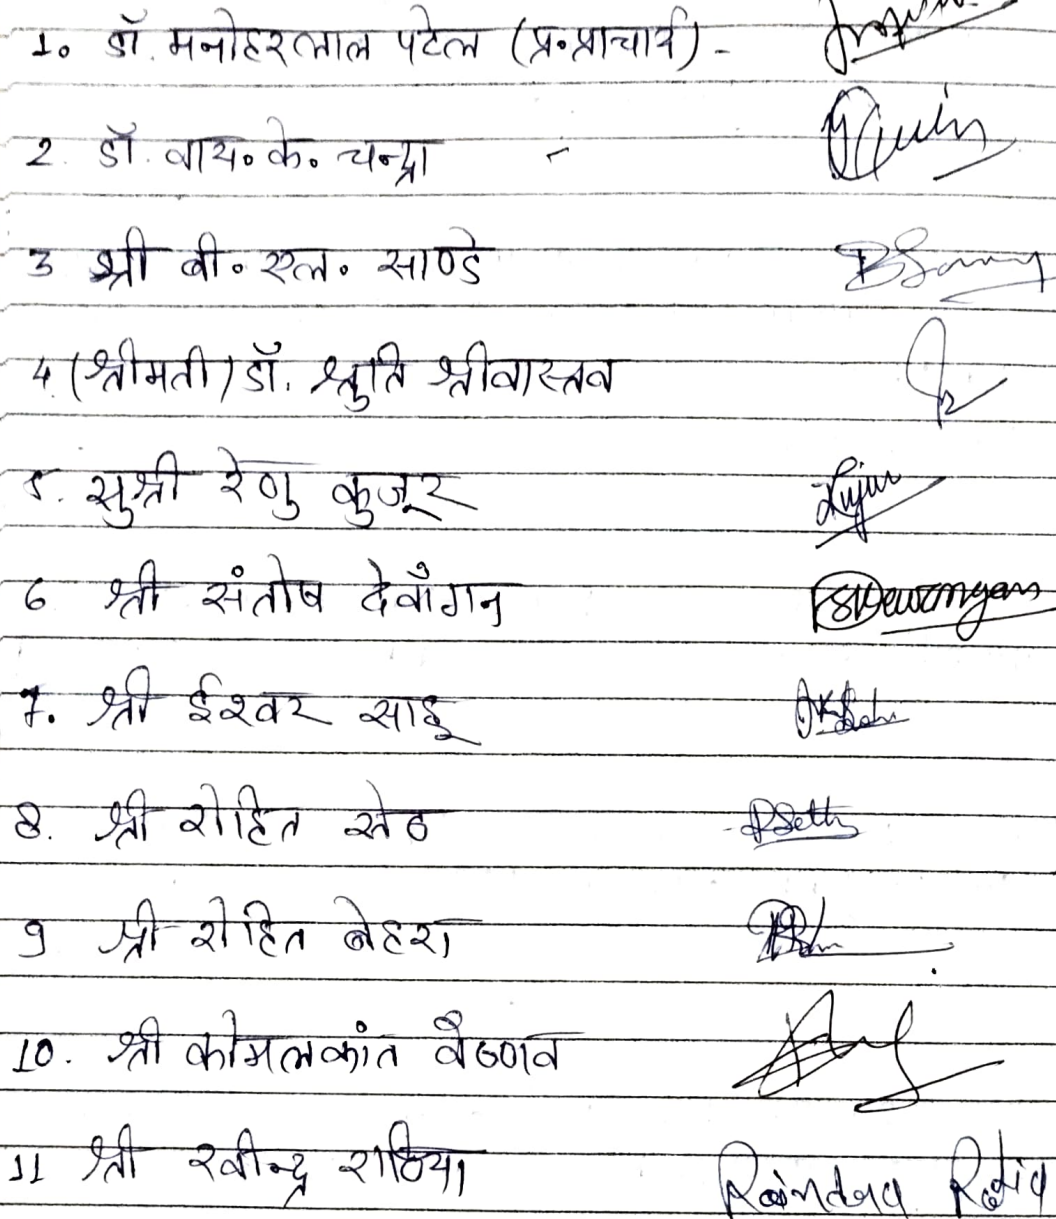 1. डॉ. मनोहरलाल पटेल (प्र.प्राचार्य) -
2. डॉ. वाय. के. चन्द्रा -
3 श्री बी. एल. साण्डे
4 (श्रीमती) डॉ. श्रुति श्रीवास्तव
5. सुश्री रेणु कुजूर Kujur
6 श्री संतोष देवाँगन SKDewangan
7. श्री ईश्वर साहू
8. श्री रोहित सेठ RSeth
9 श्री रोहित बेहरा
10. श्री कोमलकांत वैष्णव
11 श्री रवीन्द्र राठिया Ravindra Rathia